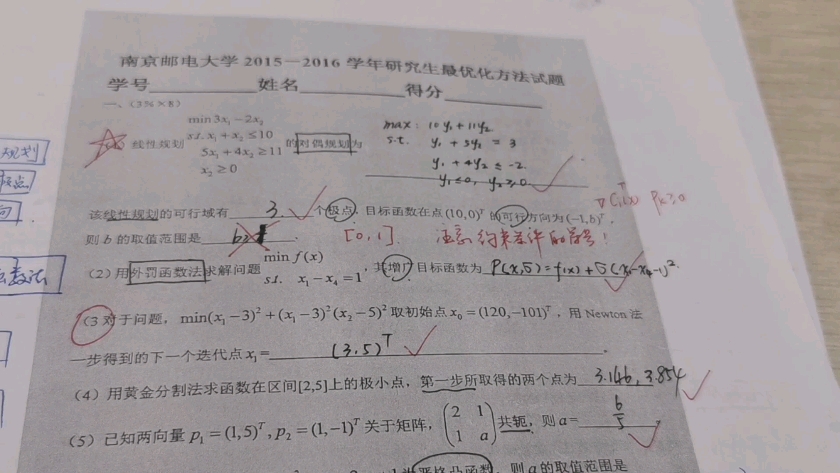 南京邮电大学 2015－2016 学年研究生最优化方法试题
学号 姓名 得分
一、(3%×8)
线性规划 min 3x₁－2x₂ s.t. x₁+x₂≤10 5x₁+4x₂≥11 x₂≥0 的对偶规划为
max: 10y₁+11y₂
s.t. y₁+5y₂=3
y₁+4y₂≤-2
y₁≤0, y₂≥0
∇Cᵢ(x)ᵀPₖ≥0
该线性规划的可行域有 3 个极点，目标函数在点(10,0)ᵀ的可行方向为(-1,b)ᵀ，
则b的取值范围是 [0,1] 注意约束条件的序号！
(2) 用外罚函数法求解问题 min f(x) s.t. x₁－x₄=1，其增广目标函数为 P(x,σ)=f(x)+σ(x₁-x₄-1)²
(3 对于问题，min(x₁－3)²+(x₁－3)²(x₂－5)² 取初始点 x₀=(120,－101)ᵀ，用 Newton 法
一步得到的下一个迭代点 x₁= (3.5)ᵀ
(4) 用黄金分割法求函数在区间[2,5]上的极小点，第一步所取得的两个点为 3.146, 3.854
(5) 已知两向量 p₁=(1,5)ᵀ, p₂=(1,－1)ᵀ 关于矩阵 (2 1 1 a) 共轭，则 a= 6/5
严格凸函数，则 a 的取值范围是
规划
极点
向
函数法